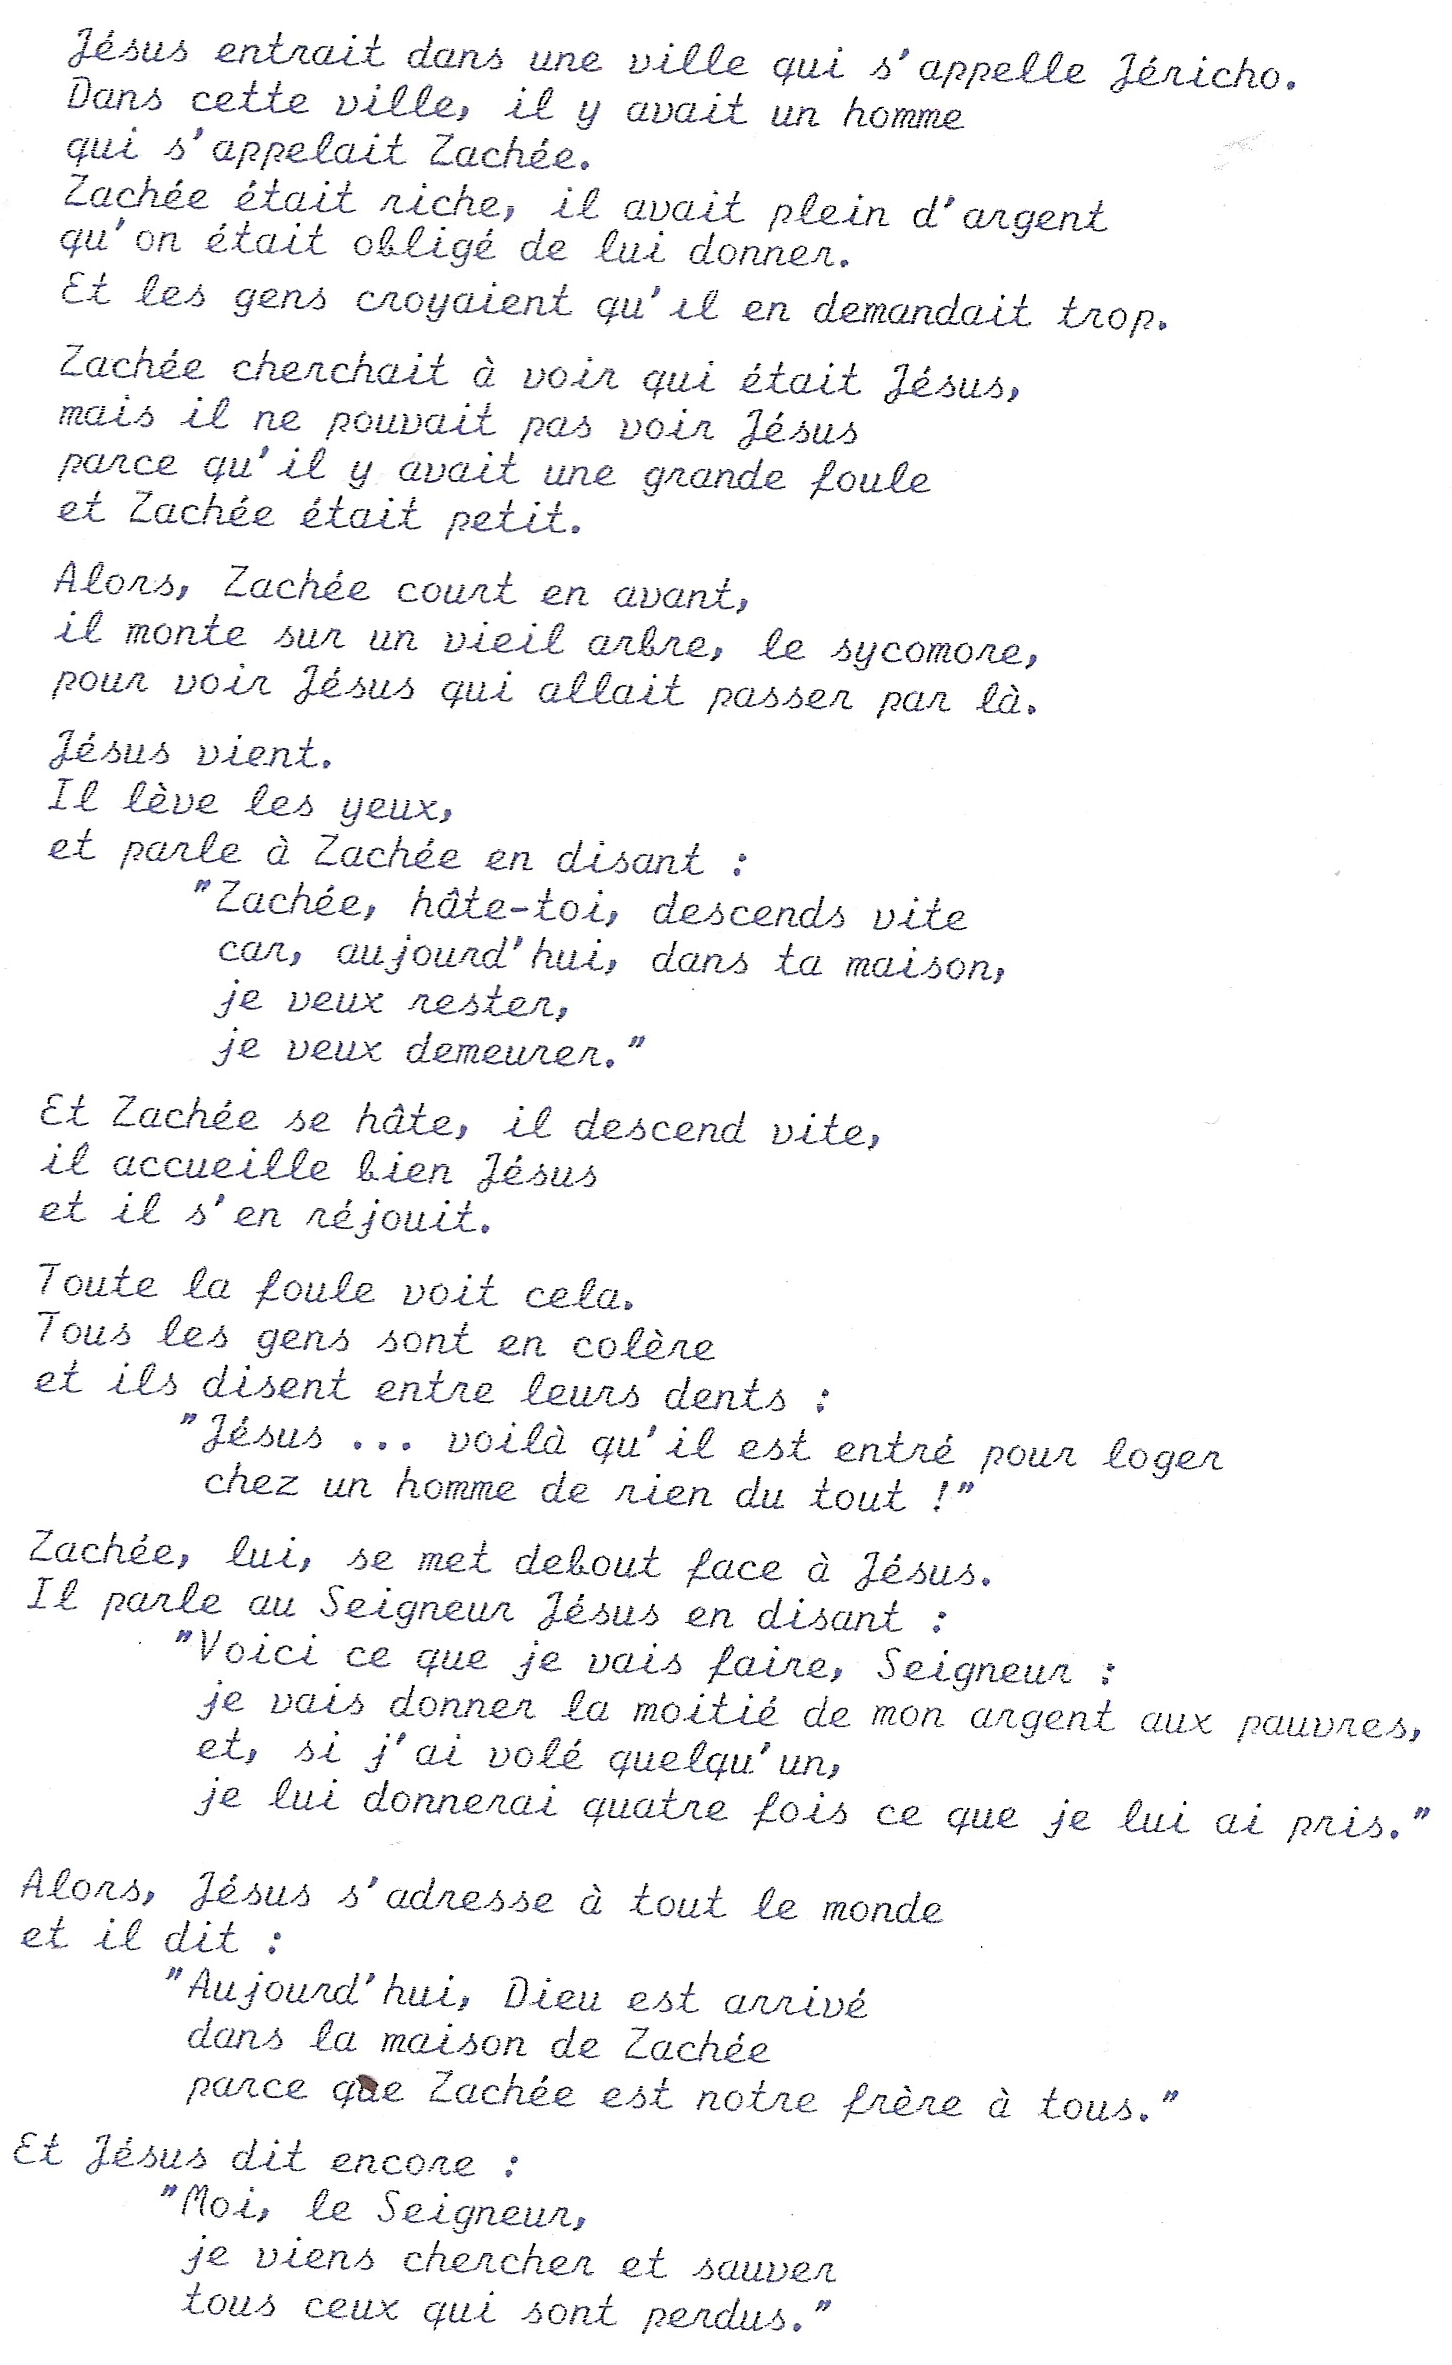 Jésus entrait dans une ville qui s'appelle Jéricho.
Dans cette ville, il y avait un homme
qui s'appelait Zachée.
Zachée était riche, il avait plein d'argent
qu'on était obligé de lui donner.
Et les gens croyaient qu'il en demandait trop.
Zachée cherchait à voir qui était Jésus,
mais il ne pouvait pas voir Jésus
parce qu'il y avait une grande foule
et Zachée était petit.
Alors, Zachée court en avant,
il monte sur un vieil arbre, le sycomore,
pour voir Jésus qui allait passer par là.
Jésus vient.
Il lève les yeux,
et parle à Zachée en disant :
"Zachée, hâte-toi, descends vite
car, aujourd'hui, dans ta maison,
je veux rester,
je veux demeurer."
Et Zachée se hâte, il descend vite,
il accueille bien Jésus
et il s'en réjouit.
Toute la foule voit cela.
Tous les gens sont en colère
et ils disent entre leurs dents :
"Jésus ... voilà qu'il est entré pour loger
chez un homme de rien du tout !"
Zachée, lui, se met debout face à Jésus.
Il parle au Seigneur Jésus en disant :
"Voici ce que je vais faire, Seigneur :
je vais donner la moitié de mon argent aux pauvres,
et, si j'ai volé quelqu'un,
je lui donnerai quatre fois ce que je lui ai pris."
Alors, Jésus s'adresse à tout le monde
et il dit :
"Aujourd'hui, Dieu est arrivé
dans la maison de Zachée
parce que Zachée est notre frère à tous."
Et Jésus dit encore :
"Moi, le Seigneur,
je viens chercher et sauver
tous ceux qui sont perdus."